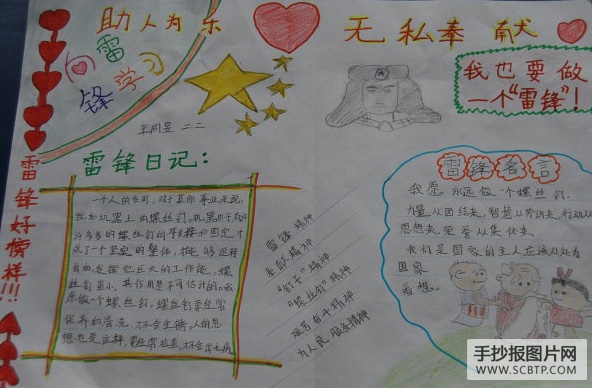 助人为乐
无私奉献
向雷
锋学习
我也要做
一个“雷锋”！
二.二
雷锋日记：
一个人的作用，对于革命事业来说，
就如机器上的螺丝钉。机器由于有
许多多的螺丝钉的联接和固定才
成了一个坚实的整体，才能够运转
自由，发挥它巨大的工作能。螺
丝钉虽小，其作用是不可估计的。我
愿做一个螺丝钉，螺丝钉要经常
保养和清洗，才不会生锈，人的思
想也是这样，要经常检查，才不会出毛病
雷锋好榜样!!!
雷锋精神
奉献精神
“钉子”精神
“螺丝钉”精神
艰苦奋斗精神
为人民服务精神
雷锋名言
我愿永远做一个螺丝钉.
力量从团结来，智慧从劳动来，行动从
思想来，荣誉从集体来。
我们是国家的主人应该处处为
国家
着想。
手抄报图片网
WWW.SCBTP.COM